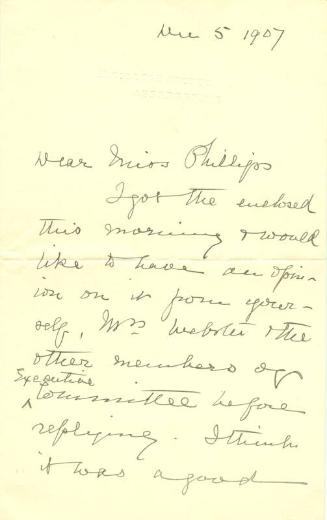 Dec 5 1907
Dear Miss Phillips
I got the enclosed
this morning & would
like to have an opin-
ion on it from your-
self, Mrs Webster & the
other members of
Executive
Committee before
replying. I think
it was a good